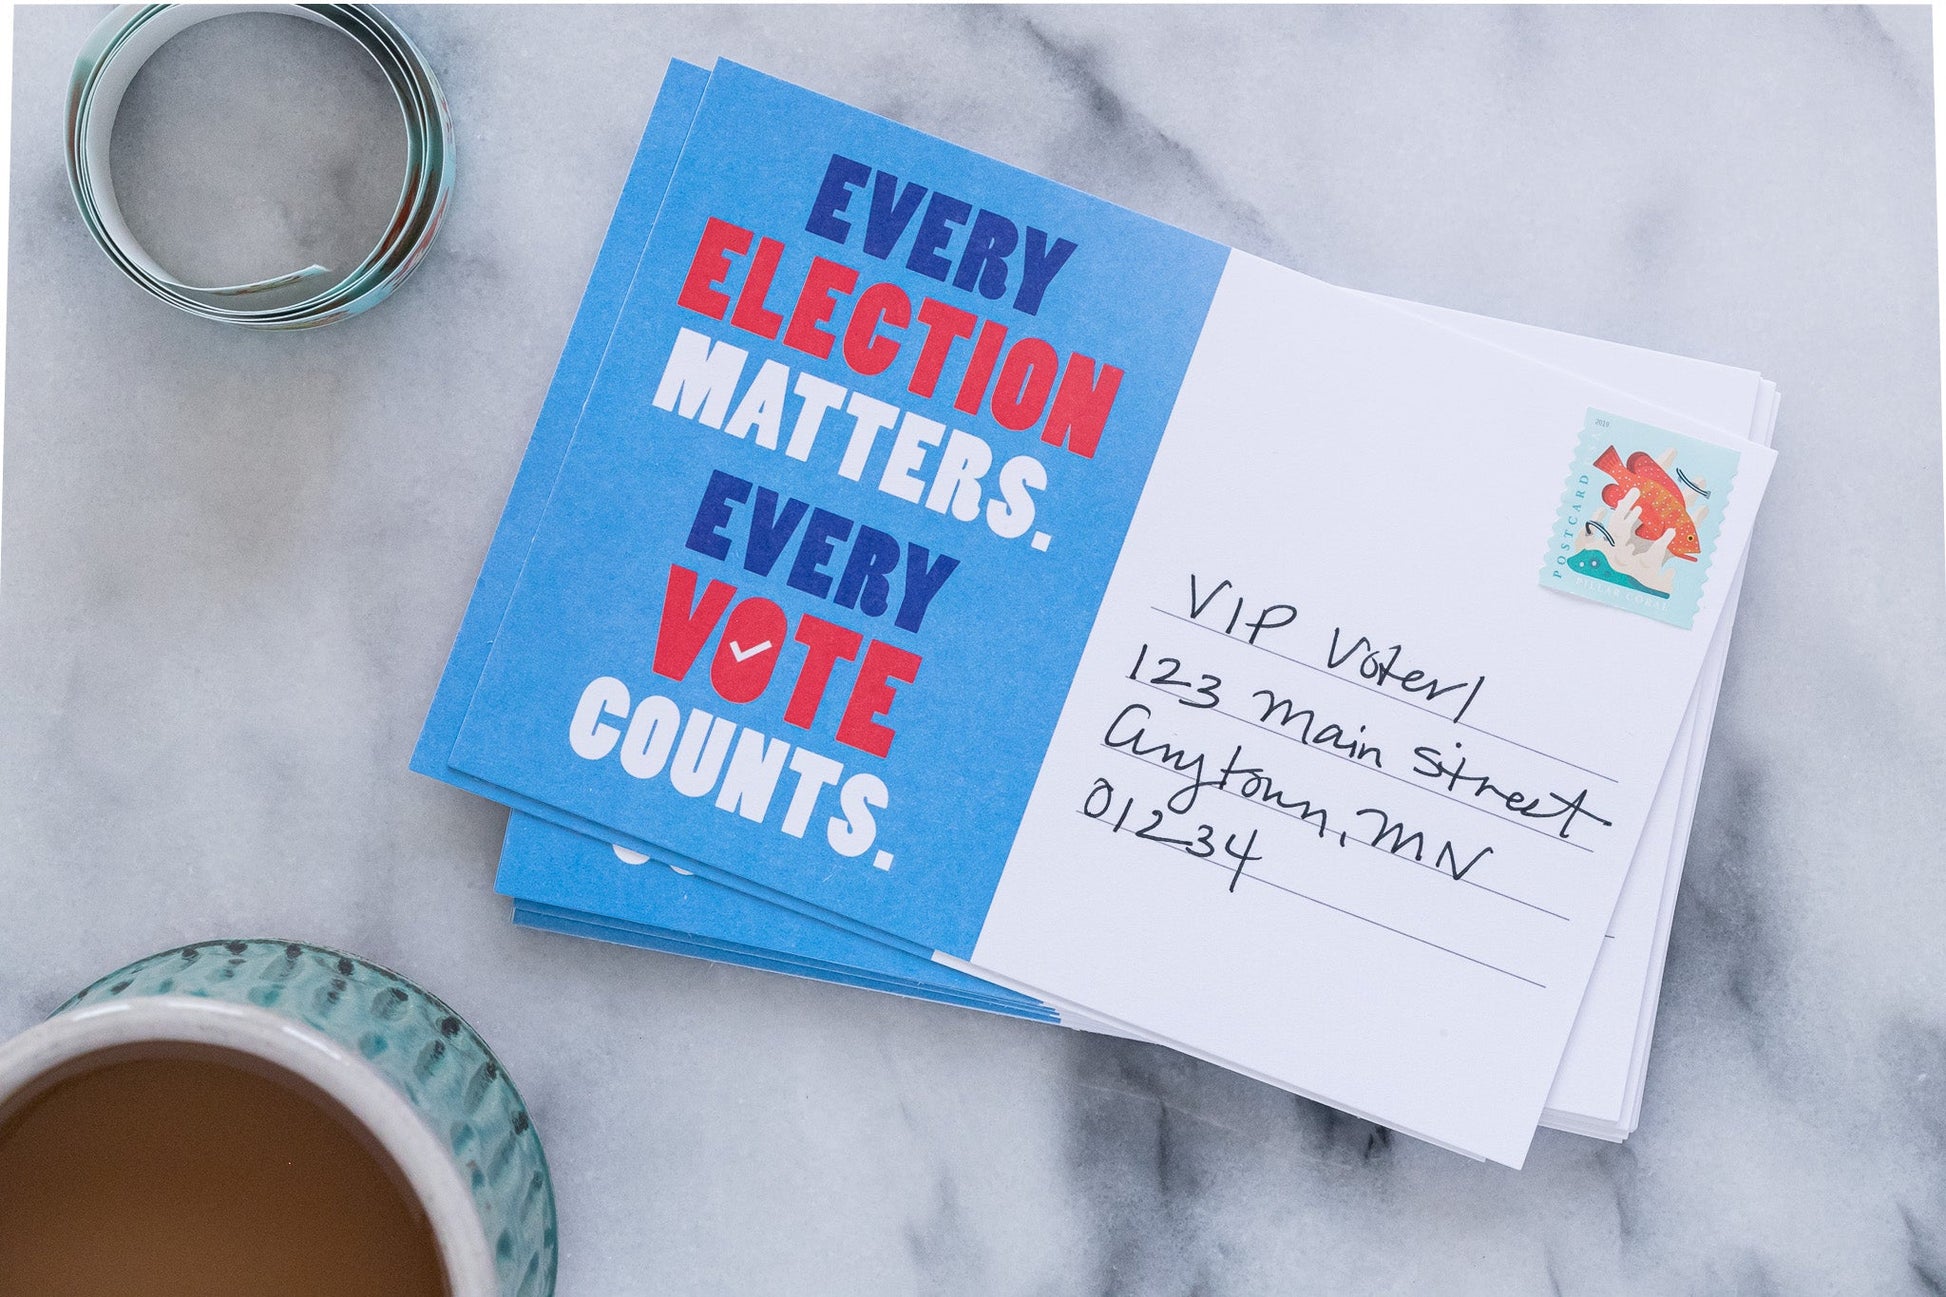 EVERY
ELECTION
MATTERS.
EVERY
VOTE
COUNTS.
2019
POSTCARD
PILLAR CORAL
VIP Voter!
123 Main Street
Anytown, MN
01234